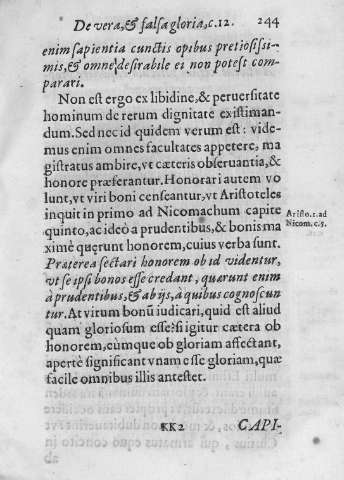 De vera, & falsa gloria, c. 12. 244
enim sapientia cunctis opibus pretiosissi-
mis, & omne desirabile ei non potest com-
parari.
Non est ergo ex libidine, & peruersitate
hominum de rerum dignitate existiman-
dum. Sed nec id quidem verum est: vide-
mus enim omnes facultates appetere, ma
gistratus ambire, vt cæteris obseruantia, &
honore præferantur. Honorari autem vo
lunt, vt viri boni censeantur, vt Aristoteles
inquit in primo ad Nicomachum capite
quinto, ac ideò a prudentibus, & bonis ma
ximè quęrunt honorem, cuius verba sunt.
Aristo. 1. ad
Nicom. c. 5.
Præterea sectari honorem ob id videntur,
vt se ipsi bonos esse credant, quærunt enim
à prudentibus, & ab ijs, à quibus cognoscun
tur. At virum bonũ iudicari, quid est aliud
quam gloriosum esse? si igitur cætera ob
honorem, eùmque ob gloriam affectant,
apertè significant vnam esse gloriam, quæ
facile omnibus illis antestet.
KK2 CAPI-